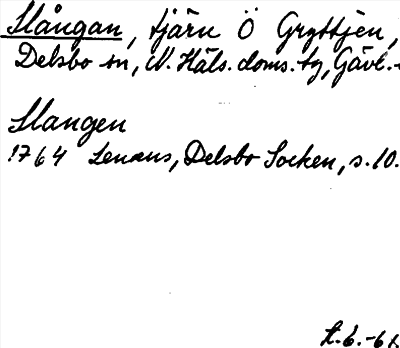 Slången, tjärn Ö Gryttjen,
Delsbo sn, N. Häls. doms. tg, Gävl.-
Slangen
1764 Lenæus, Delsbo Socken, s. 10.